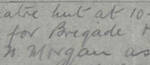 atre hut at 10-
for Brigade
n Morgan as